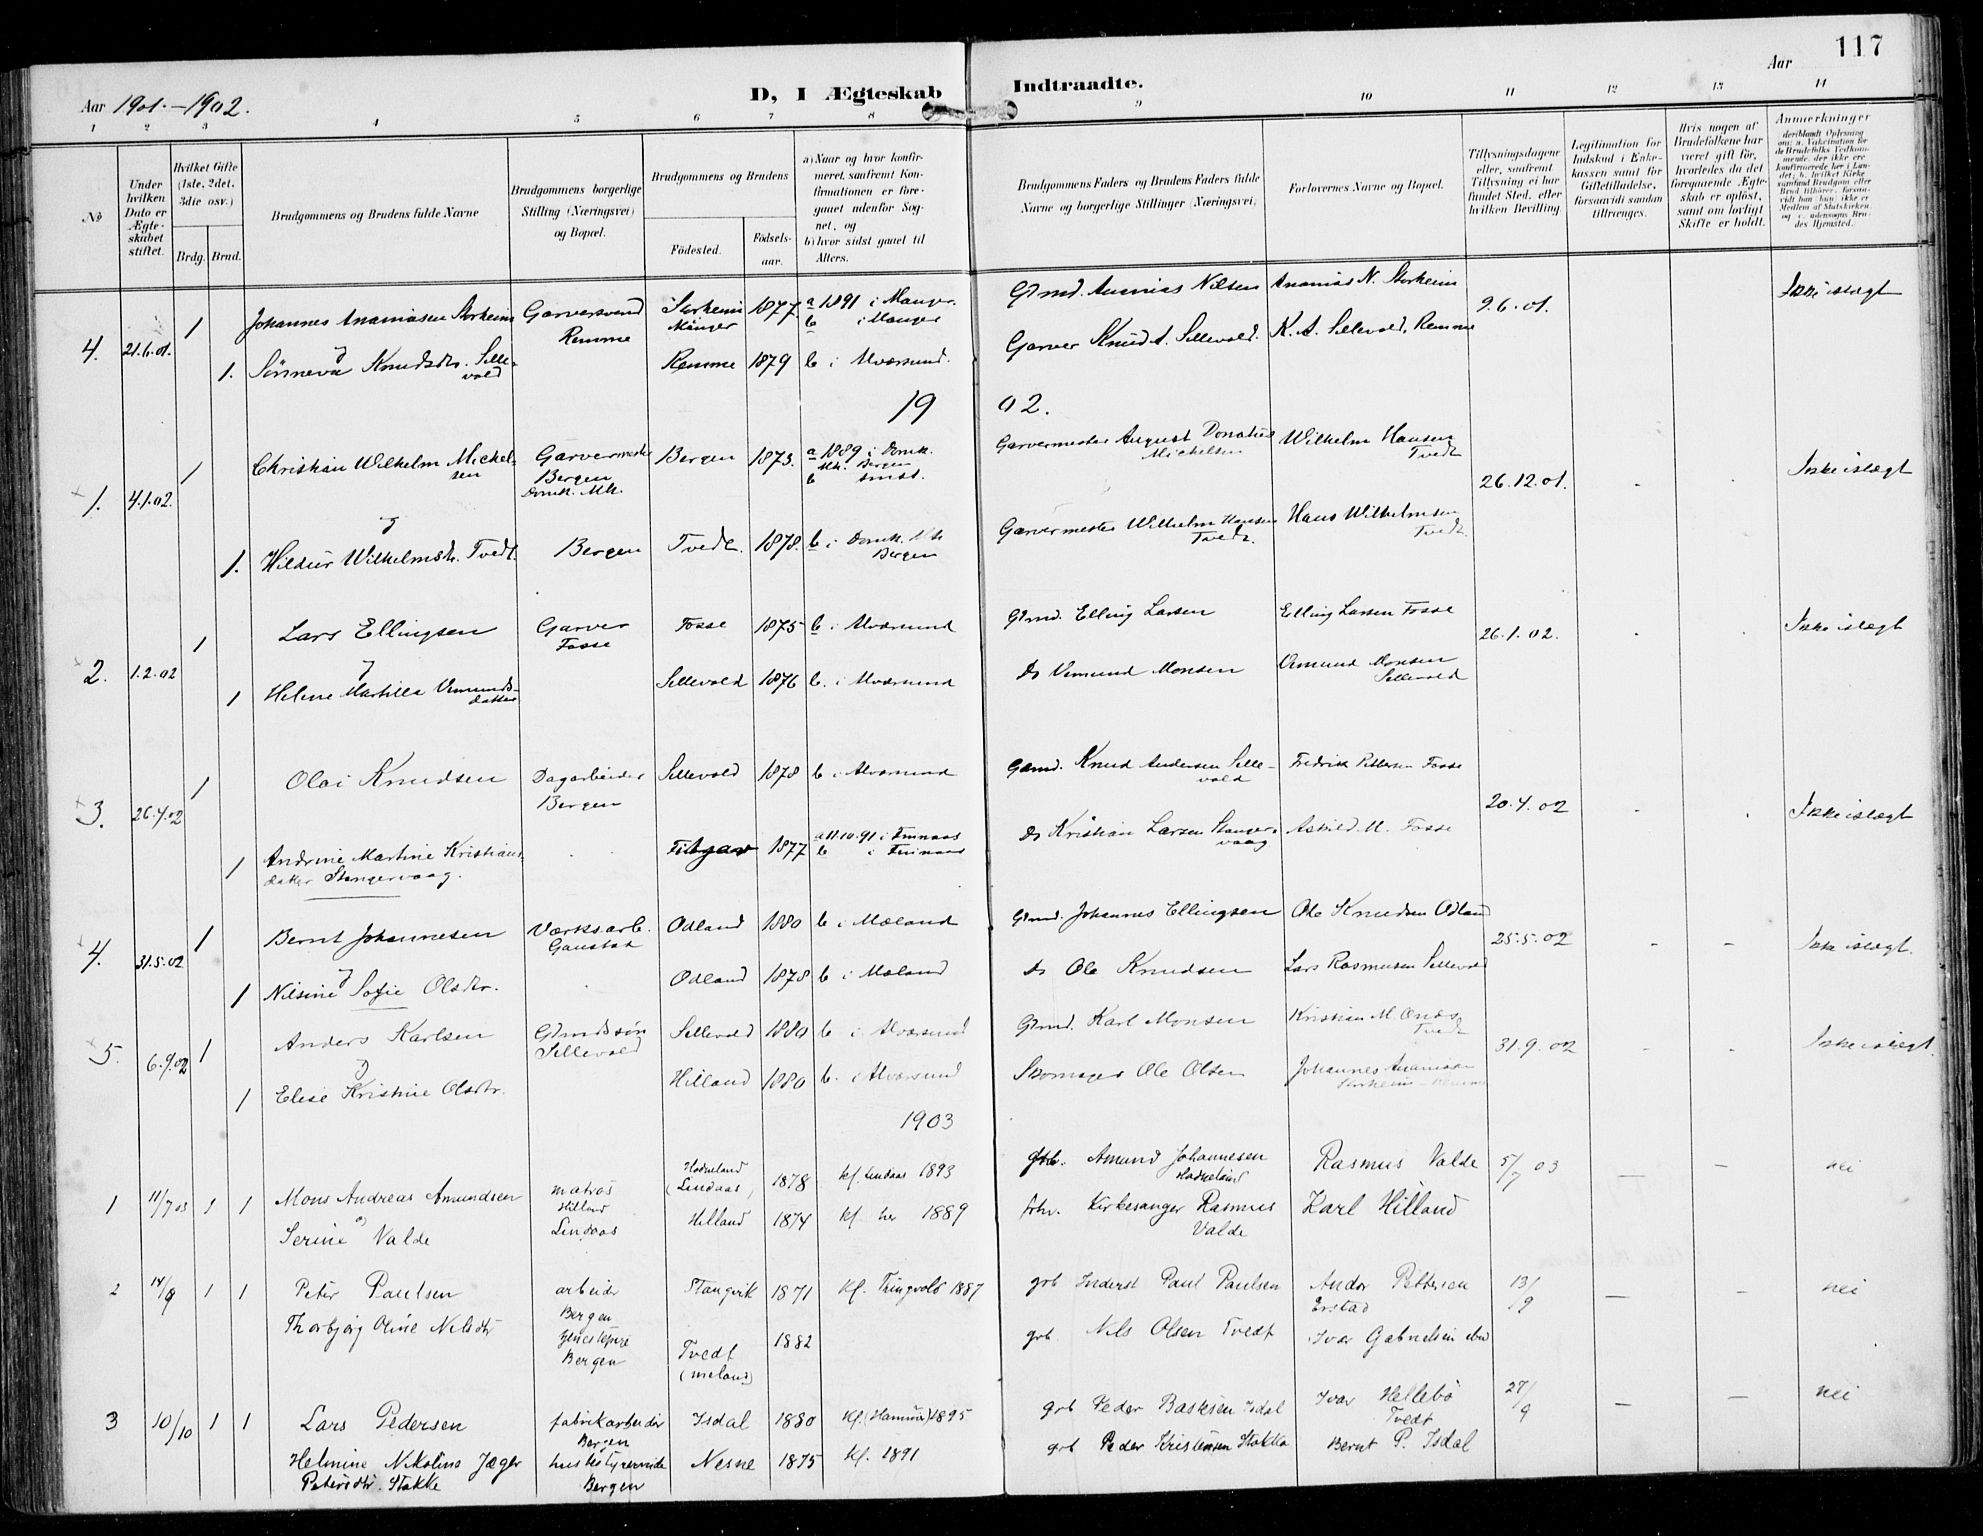 117
Aar 1901.-1902.
D, I Ægteskab Indtraadte.
Aar
1 2 3 4 5 6 7 8 9 10 11 12 13 14
No
Under hvilken Dato er Ægteskabet stiftet.
Hvilket Gifte (1ste, 2det, 3die osv.)
Brdg. Brud.
Brudgommens og Brudens fulde Navne
Brudgommens borgerlige Stilling (Næringsvei) og Bopæl.
Brudgommens og Brudens
Födested. Födselsaar.
a) Naar og hvor konfirmeret, saafremt Konfirmationen er foregaaet udenfor Sognet, og
b) hvor sidst gaaet til Alters.
Brudgommens Faders og Brudens Faders fulde Navne og borgerlige Stillinger (Næringsvei)
Forlovernes Navne og Bopæl.
Tillysningsdagene eller, saafremt Tillysning ei har fundet Sted, efter hvilken Bevilling.
Legitimation for Indskud i Enkekassen samt for Giftetilladelse, forsaavidt saadan tiltrænges.
Hvis nogen af Brudefolkene har været gift før, hvorledes da det foregaaende Ægteskab er opløst, samt om lovligt Skifte er holdt.
Anmerkninger
4. 21.6.01. 1 Johannes Ananiasen Storheim Garversvend Remme Storheim Manger 1877 a 1891 i Manger. b i Manger Gbmd. Ananias Nilsen Ananias N. Storheim 9.6.01. Ikke i slægt
1. Sønneva Knudsdtr. Sellevold Remme 1879 b i Alværsund. Garver Knud A. Sellevold. K. A. Sellevold, Remme
1902.
1. 4.1.02. 1 Christian Wilhelm Mickelsen Garvermester Bergen Domk. Mk. Bergen 1873. a 1889 i Domk. Mk. Bergen b smst. Garvermester August Donatus Michelsen Wilhelm Hansen Tvedt 26.12.01. Ikke i slægt
1. Hildur Wilhelmsdtr. Tvedt. Bergen Tvedt. 1878. b i Domk. Mk Bergen Garvermester Wilhelm Hansen Tvedt. Hans Wilhelmsen Tvedt.
2. 1.2.02 1 Lars Ellingsen Garver Fosse Fosse 1875 b i Alværsund Gbmd. Elling Larsen Elling Larsen Fosse 26.1.02. Ikke i slægt
1 Helene Martilla Vemundsdatter Sellevold 1876 b. i Alværsund Do Vemund Monsen Vemund Monsen Sellevold
3. 26.4.02 1 Olai Knudsen Dagarbeider Bergen Sellevold 1878 b i Alværsund Gbmd. Knud Andersen Sellevold Fredrik Pettersen Fosse 20.4.02 Ikke i slægt
1 Andrine Martine Kristiansdatter Stangervaag. Fitjar 1877 a 11.10.91 i Finnaas b i Finnaas Do Kristian Larsen Stangervaag M. Fosse
4. 31.5.02 1 Bernt Johannesen Værksarb. Gaustad Odland 1880 b i Mæland Gbmd. Johannes Ellingsen Ole Knudsen Odland 25.5.02 Ikke i slægt.
1 Nilsine Sofie Olsdtr. Odland 1878 b i Mæland Do Ole Knudsen Lars Rasmusen Sellevold
5. 6.9.02 1 Anders Karlsen Gbmdssön Sellevold Sellevold 1880 b i Alværsund Gbmd. Karl Monsen Kristian M. Tvedt 31.9.02 Ikke i slægt.
1 Elise Kristine Olsdtr. Hilland 1880 b. i Alværsund Skomager Ole Olsen Johannes Ananiasen Storheim Remme
1903
1 11/7 03 1 1 Mons Andreas Amundsen matros Hilland Lindaas Hodneland (Lindaas) 1878 kf. Lindaas 1893 grb. Amund Johannesen Hodneland Rasmus Valde 5/7 03 nei
Serine Valde Hilland 1874 kf. her 1889 frhv. Kirkesanger Rasmus Valde Karl Hilland
2 14/9 1 1 Peter Paulsen arbeider Bergen Stangvik 1871 kf. Tingvold 1887 grb Inderst Paul Paulsen Andor Pettersen Erstad 13/9 nei
Thorbjørg Oline Nilsdtr tjenestepige Bergen Tvedt (meland) 1882 grb. Nils Olsen Tvedt Ivar Gabrielsen ibid
3 10/10 1 1 Lars Pedersen fabrikarbeider Bergen Isdal 1880 kf. (Hammer) 1895 grb Peder Baskesen Isdal Ivar Hellebø Tvedt 27/9 nei
Helmine Nikoline Jæger Petersdtr. Stokke husbestyrerinde Bergen Nesne 1875 kf. 1891 grb Peder Kristensen Stokke Bernt P. Isdal